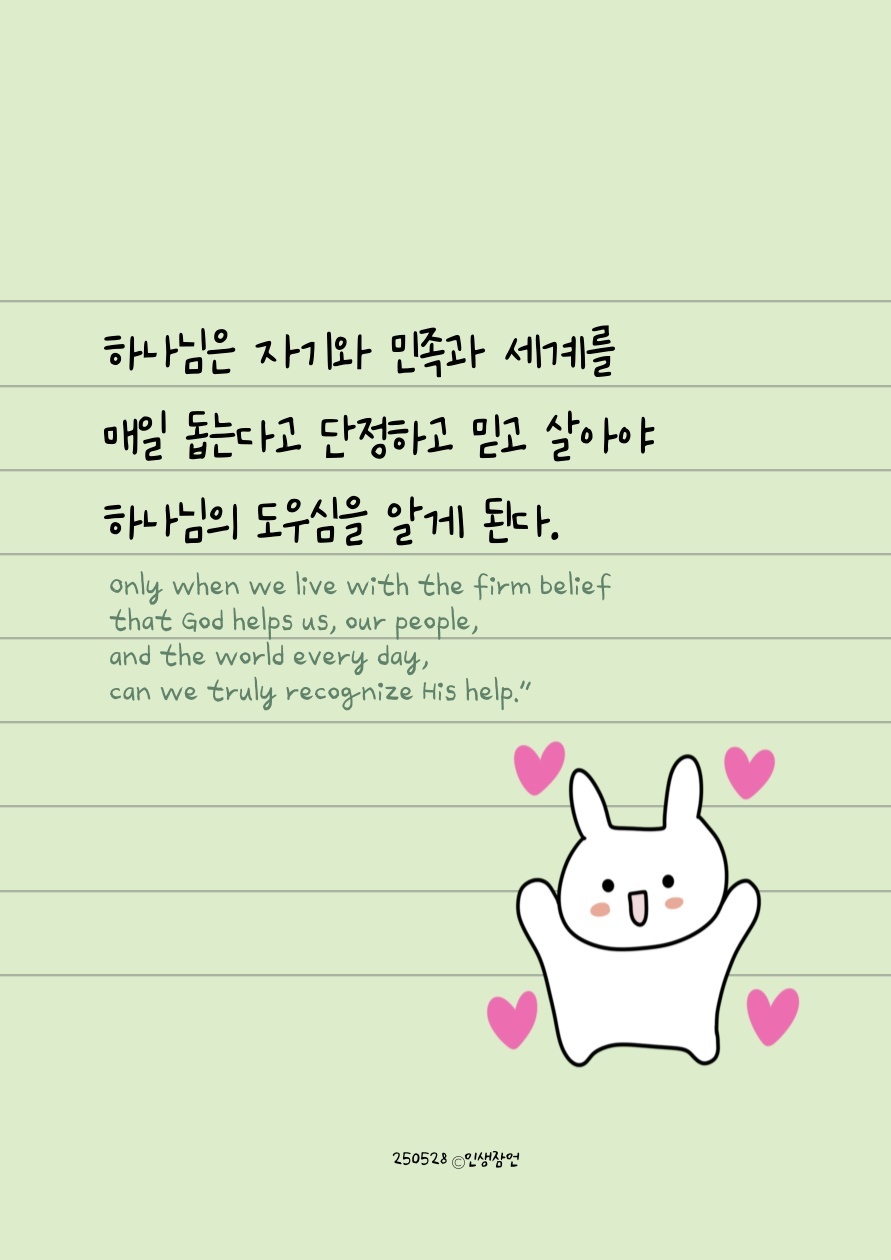 하나님은 자기와 민족과 세계를
매일 돕는다고 단정하고 믿고 살아야
하나님의 도우심을 알게 된다.
Only when we live with the firm belief
that God helps us, our people,
and the world every day,
can we truly recognize His help.”
250528 ©인생잠언